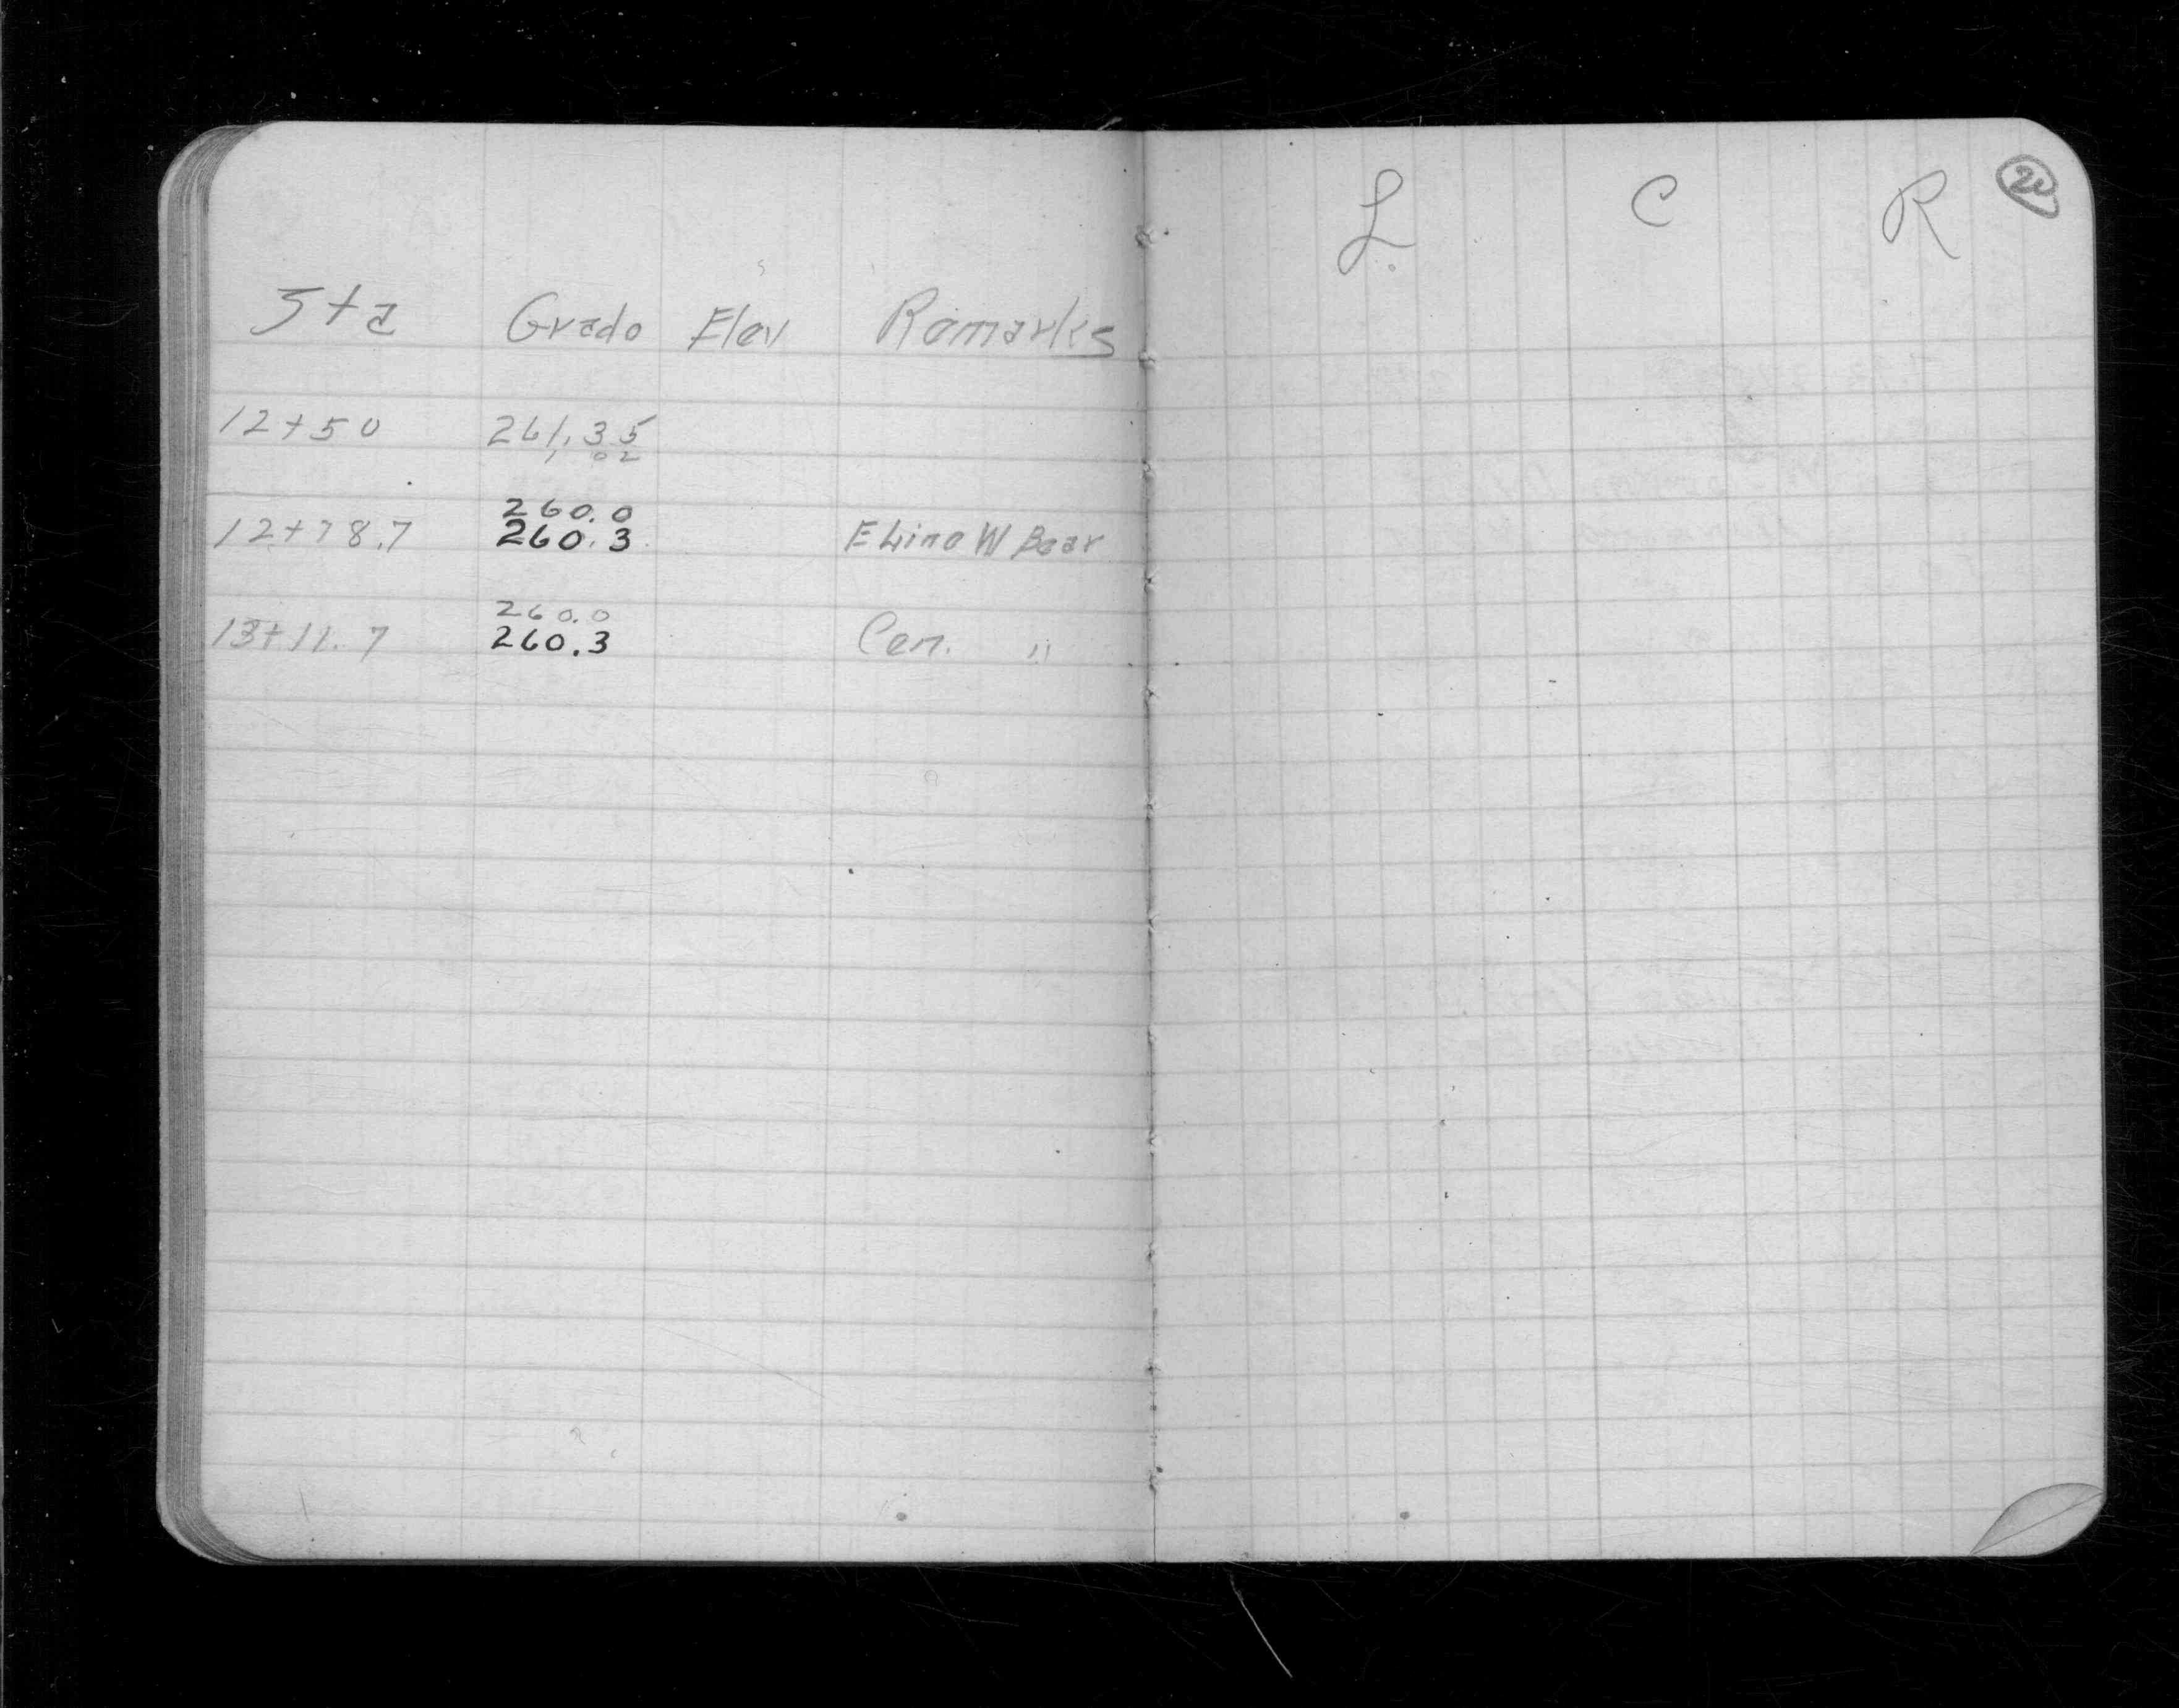 L. C R
Sta Grade Elev Remarks
12+50 261.35
1 02
260.0
12+78.7 260.3 E Line W Bear
260.0
13+11.7 260.3 Cen. "